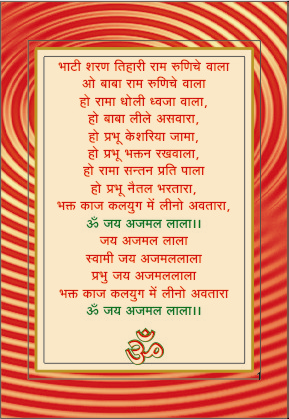 भाटी शरण तिहारी राम रुणिचे वाला
ओ बाबा राम रुणिचे वाला
हो रामा धोली ध्वजा वाला,
हो बाबा लीले असवारा,
हो प्रभू केशरिया जामा,
हो प्रभू भक्तन रखवाला,
हो रामा सन्तन प्रति पाला
हो प्रभू नैतल भरतारा,
भक्त काज कलयुग में लीनो अवतारा,
ॐ जय अजमल लाला।।
जय अजमल लाला
स्वामी जय अजमललाला
प्रभु जय अजमललाला
भक्त काज कलयुग में लीनो अवतारा
ॐ जय अजमल लाला।।
ॐ
1